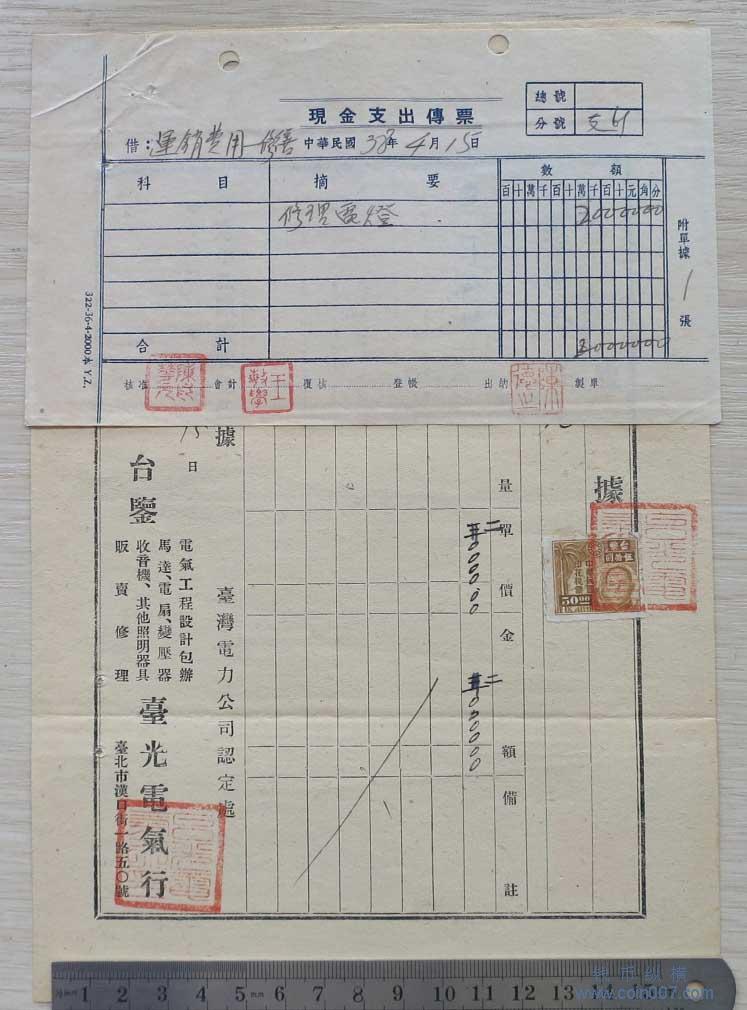 現金支出傳票
總號
分號 支11
借：運銷費用—修善 中華民國38年4月15日
科目 摘要 數額
百十萬千百十萬千百十元角分
修理電燈 2000000
合計 2000000
附單據1張
322-36-4-2000本 Y.Z.
核准 會計 覆核 登帳 出納 製單
據
量 單價 金額 備註
二00000
二00000
50.00
據
15日
台鑒
臺灣電力公司認定處
電氣工程設計包辦
馬達、電扇、變壓器
收音機、其他照明器具
販賣修理
臺光電氣行
臺北市漢口街一路五〇號
1 2 3 4 5 6 7 8 9 10 11 12 13 14 15
錢幣縱橫
www.coin007.com